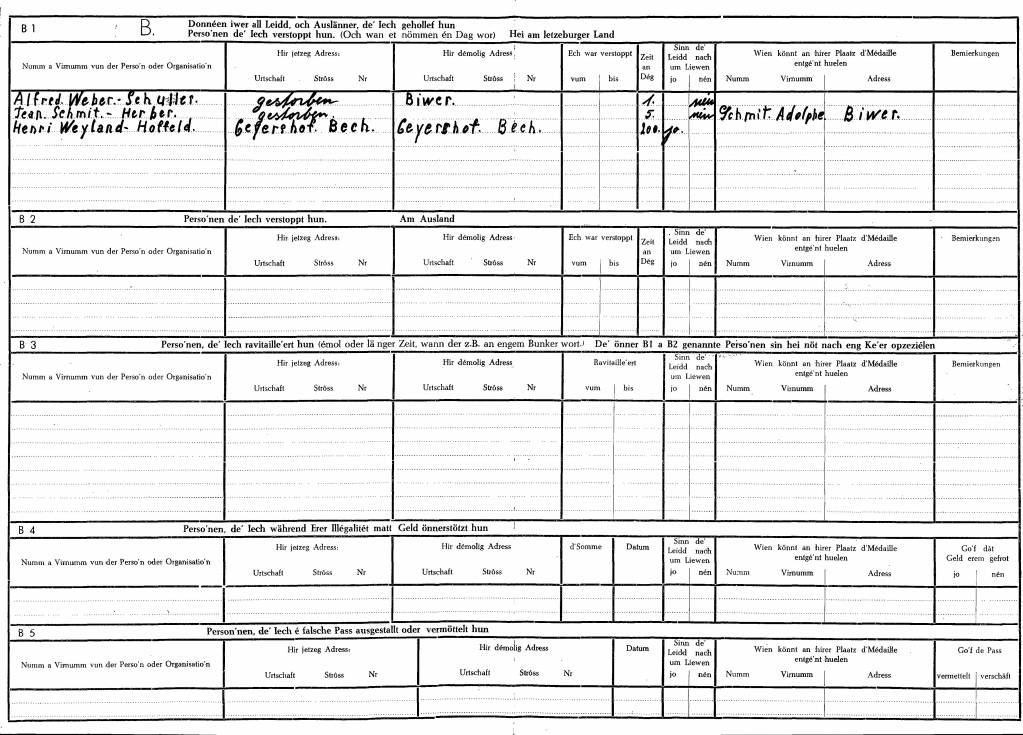 B 1 B. Donnéen iwer all Leidd, och Auslänner, de' Iech gehollef hun
Perso'nen de' Iech verstoppt hun. (Och wan et nömmen én Dag wor) Hei am letzeburger Land
Numm a Virnumm vun der Perso'n oder Organisatio'n
Hir jetzeg Adress:
Urtschaft Ströss Nr
Hir démolig Adress:
Urtschaft Ströss Nr
Ech war verstoppt
vum bis
Zeit
an
Dég
Sinn de'
Leidd nach
um Liewen
jo nén
Wien könnt an hirer Plaatz d'Médaille
entgé'nt huelen
Numm Virnumm Adress
Bemierkungen
Alfred. Weber.- Schuller. gestorben Biwer. 1. nein
Jean. Schmit.- Herber. gestorben. 5. nein Schmit. Adolphe. Biwer.
Henri Weyland- Hoffeld. Geyershof. Bech. Geyershof. Bech. 200. jo.
B 2 Perso'nen de' Iech verstoppt hun. Am Ausland
Numm a Virnumm vun der Perso'n oder Organisatio'n
Hir jetzeg Adress:
Urtschaft Ströss Nr
Hir démolig Adress:
Urtschaft Ströss Nr
Ech war verstoppt
vum bis
Zeit
an
Dég
Sinn de'
Leidd nach
um Liewen
jo nén
Wien könnt an hirer Plaatz d'Médaille
entgé'nt huelen
Numm Virnumm Adress
Bemierkungen
B 3 Perso'nen, de' Iech ravitaille'ert hun (émol oder länger Zeit, wann der z.B. an engem Bunker wort.) De' önner B1 a B2 genannte Perso'nen sin hei nöt nach eng Ke'er opzeziélen
Numm a Virnumm vun der Perso'n oder Organisatio'n
Hir jetzeg Adress:
Urtschaft Ströss Nr
Hir démolig Adress
Urtschaft Ströss Nr
Ravitaille'ert
vum bis
Sinn de'
Leidd nach
um Liewen
jo nén
Wien könnt an hirer Plaatz d'Médaille
entgé'nt huelen
Numm Virnumm Adress
Bemierkungen
B 4 Perso'nen, de' Iech während Erer Illégalitét matt Geld önnerstötzt hun
Numm a Virnumm vun der Perso'n oder Organisatio'n
Hir jetzeg Adress:
Urtschaft Ströss Nr
Hir démolig Adress
Urtschaft Ströss Nr
d'Somme
Datum
Sinn de'
Leidd nach
um Liewen
jo nén
Wien könnt an hirer Plaatz d'Médaille
entgé'nt huelen
Numm Virnumm Adress
Go'f dât
Geld erem gefrot
jo nén
B 5 Person'nen, de' Iech é falsche Pass ausgestallt oder vermöttelt hun
Numm a Virnumm vun der Perso'n oder Organisatio'n
Hir jetzeg Adress:
Urtschaft Ströss Nr
Hir démolig Adress
Urtschaft Ströss Nr
Datum
Sinn de'
Leidd nach
um Liewen
jo nén
Wien könnt an hirer Plaatz d'Médaille
entgé'nt huelen
Numm Virnumm Adress
Go'f de Pass
vermettelt verschâft